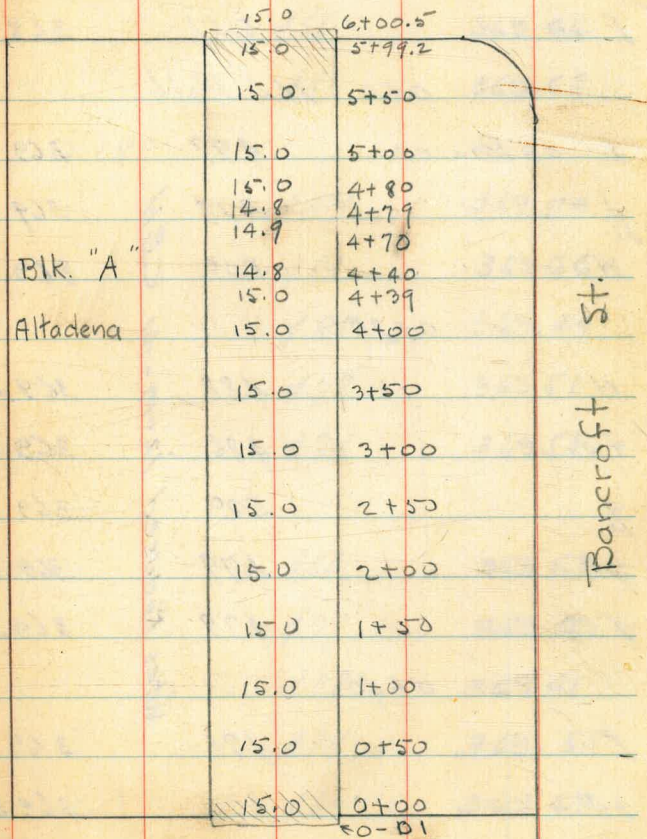 15.0 6+00.5
15.0 5+99.2
15.0 5+50
15.0 5+00
15.0 4+80
14.8 4+79
14.9 4+70
Blk. "A" 14.8 4+40
15.0 4+39
Altadena 15.0 4+00
15.0 3+50
15.0 3+00
15.0 2+50
15.0 2+00
15.0 1+50
15.0 1+00
15.0 0+50
15.0 0+00
Bancroft St.